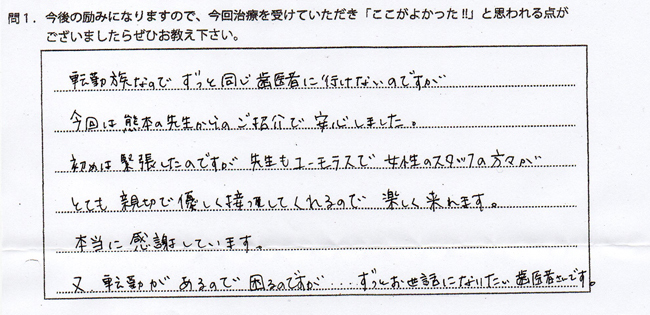 問1．今後の励みになりますので、今回治療を受けていただき「ここがよかった!!」と思われる点が
ございましたらぜひお教え下さい。
転勤族なので ずっと同じ歯医者に行けないのですが
今回は熊本の先生からのご紹介で 安心しました。
初めは緊張したのですが 先生もユーモラスで 女性のスタッフの方々が
とても 親切で優しく接遇してくれるので 楽しく来れます。
本当に感謝しています。
又 転勤が あるので 困るのですが…ずっとお世話になりたい歯医者さんです。